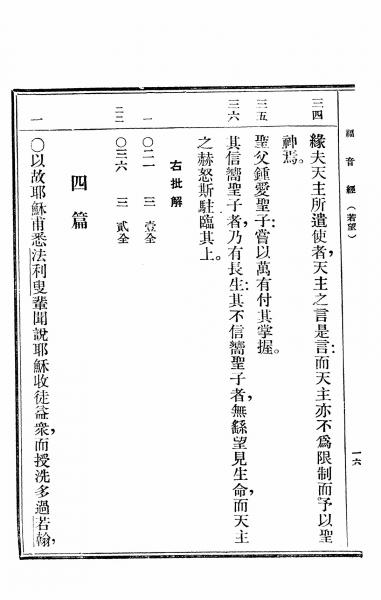 福音經（若望） 一六
三四 緣夫天主所遣使者，天主之言是言；而天主亦不爲限制而予以聖
神焉。
三五 聖父鍾愛聖子；嘗以萬有付其掌握。
三六 其信嚮聖子者，乃有長生；其不信嚮聖子者，無繇望見生命，而天主
之赫怒斯駐臨其上。
右批解
一 〇二一 三 壹全
二二 〇三六 三 貳全
四篇
一 〇以故耶穌甫悉法利叟輩聞說耶穌收徒益衆，而授洗多過若翰，